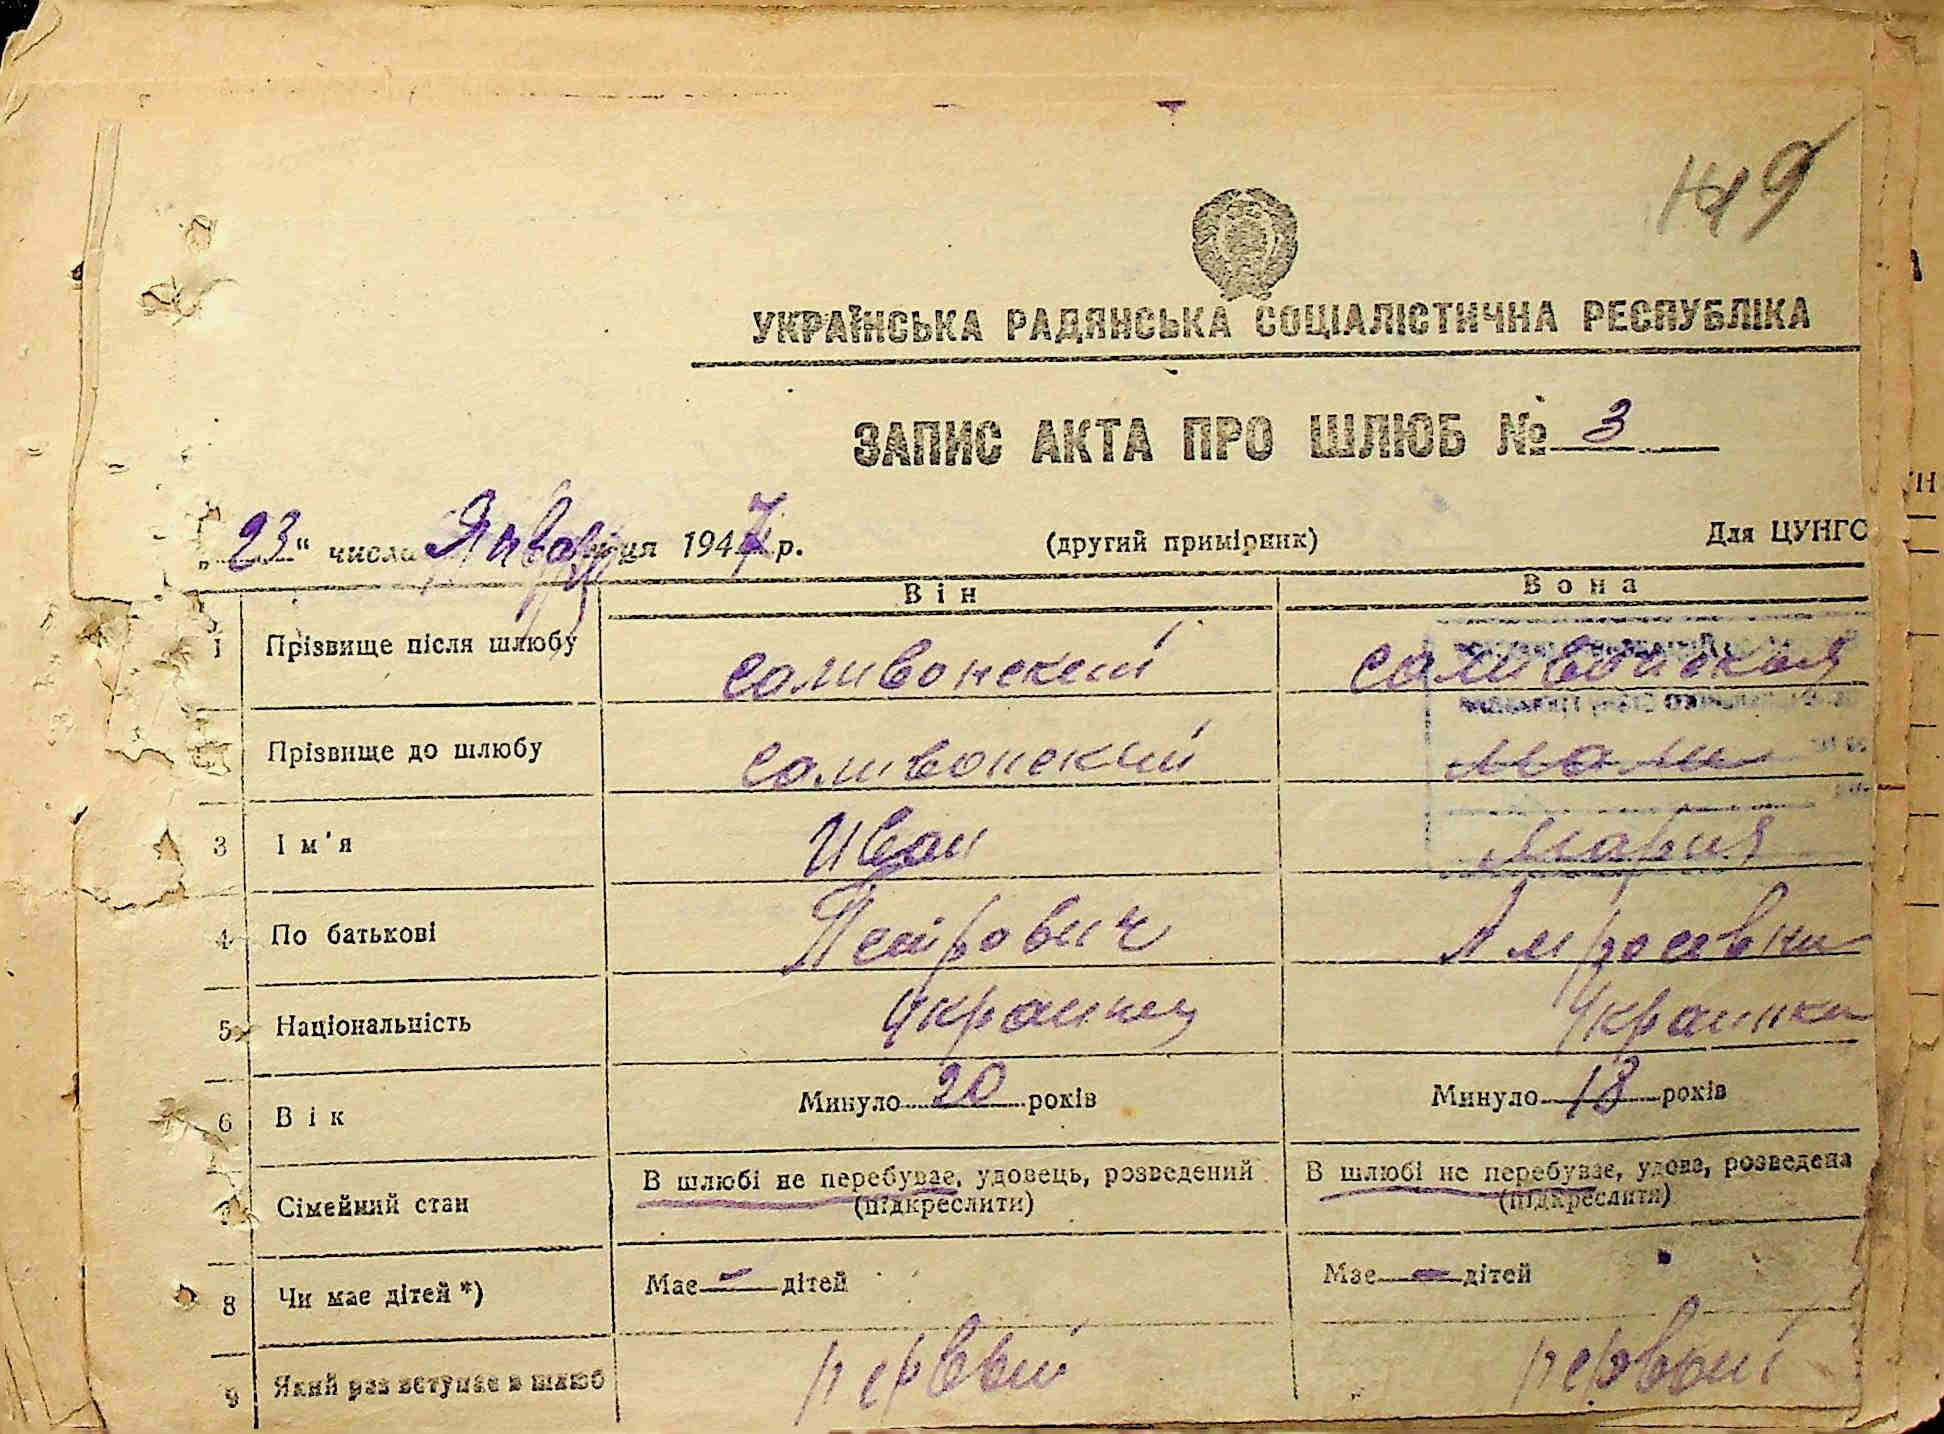 149
УКРАЇНСЬКА РАДЯНСЬКА СОЦІАЛІСТИЧНА РЕСПУБЛІКА
ЗАПИС АКТА ПРО ШЛЮБ № 3
„23“ числа Января місяця 1947 р. (другий примірник) Для ЦУНГС
Він Вона
1 Прізвище після шлюбу Саливонский Саливонская
Прізвище до шлюбу Саливонский
3 Ім'я Иван Мария
4 По батькові Петрович
5 Національність Украинец Украинка
6 Вік Минуло 20 років Минуло 18 років
7 Сімейний стан В шлюбі не перебуває, удовець, розведений (підкреслити) В шлюбі не перебуває, удова, розведена (підкреслити)
8 Чи має дітей *) Має — дітей Має — дітей
9 Який раз вступає в шлюб первый первый